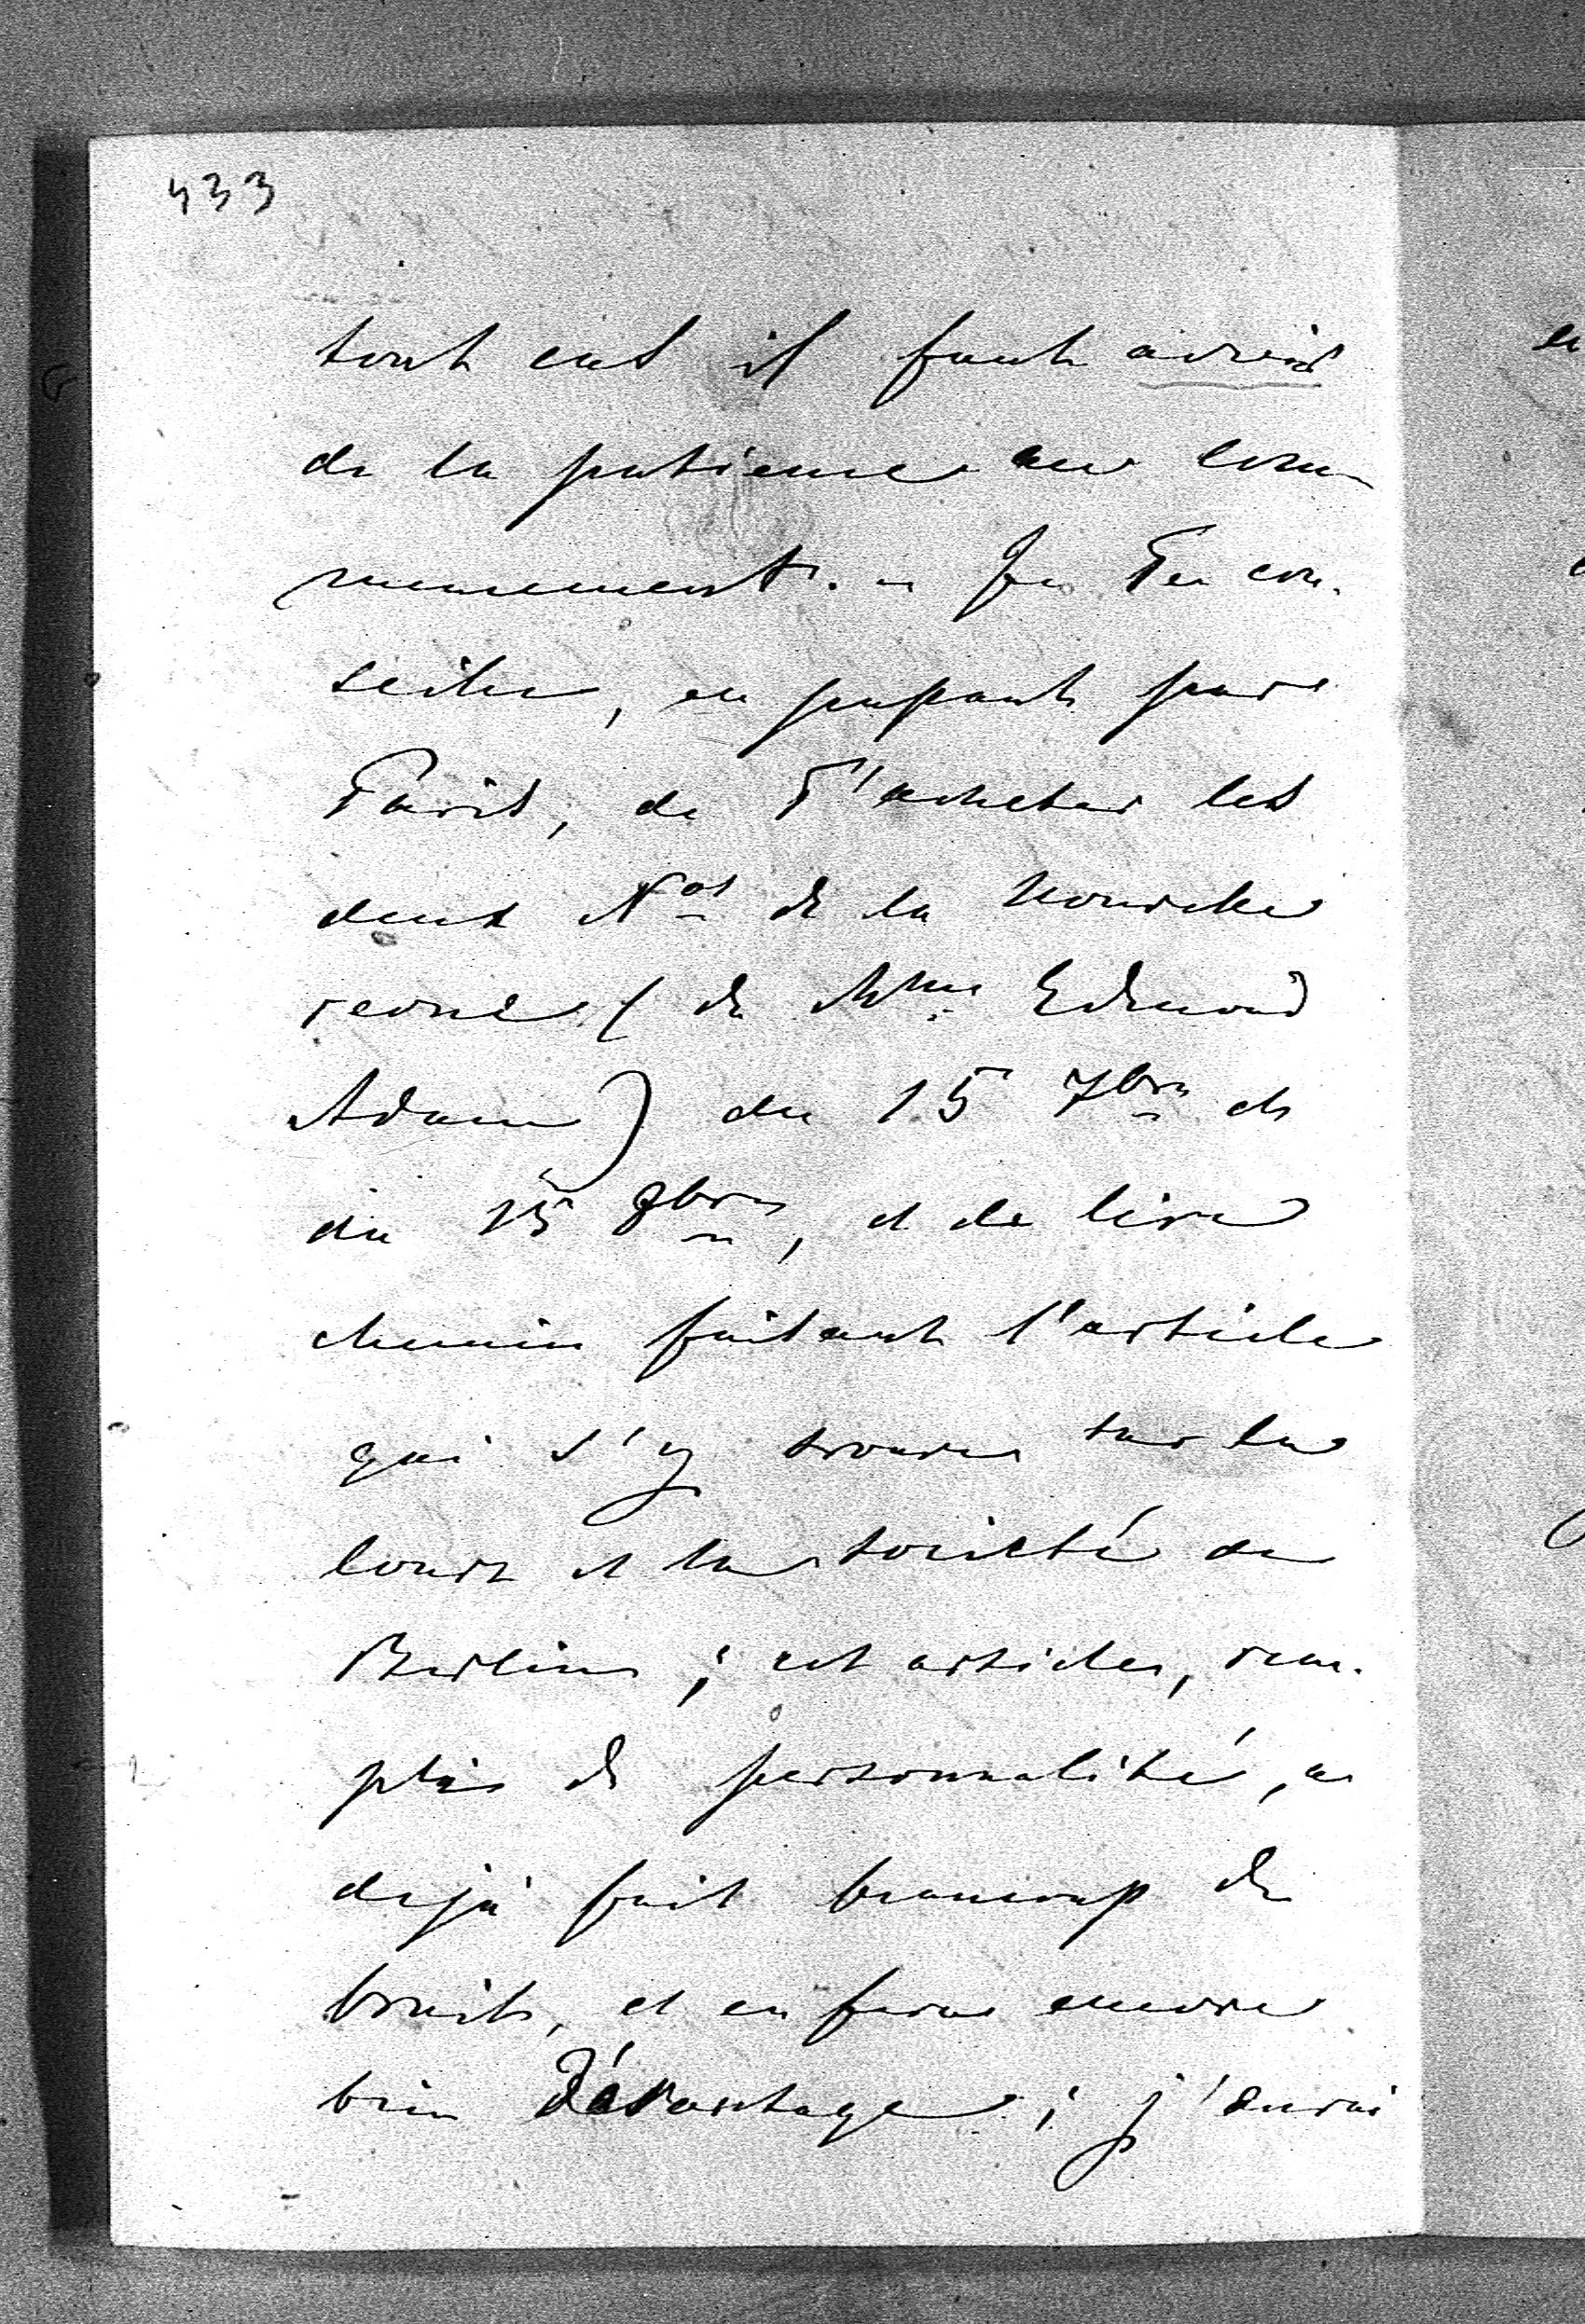 433
tout cas il faut avoir
de la patience au com-
mencement. – Je Te con-
seille, en passant par
Paris, de T'acheter les
deux Nos de la Nouvelle
revue (de Mme Edmond
Adam) du 15 7bre et
du 15 8bre, et de lire
chemin faisant l'article
qui s'y trouve sur la
cour et la société de
Berlin ; cet article, rem-
pli de personnalité, a
déjà fait beaucoup de
bruit, et en fera encore
bien davantage ; j'aurai